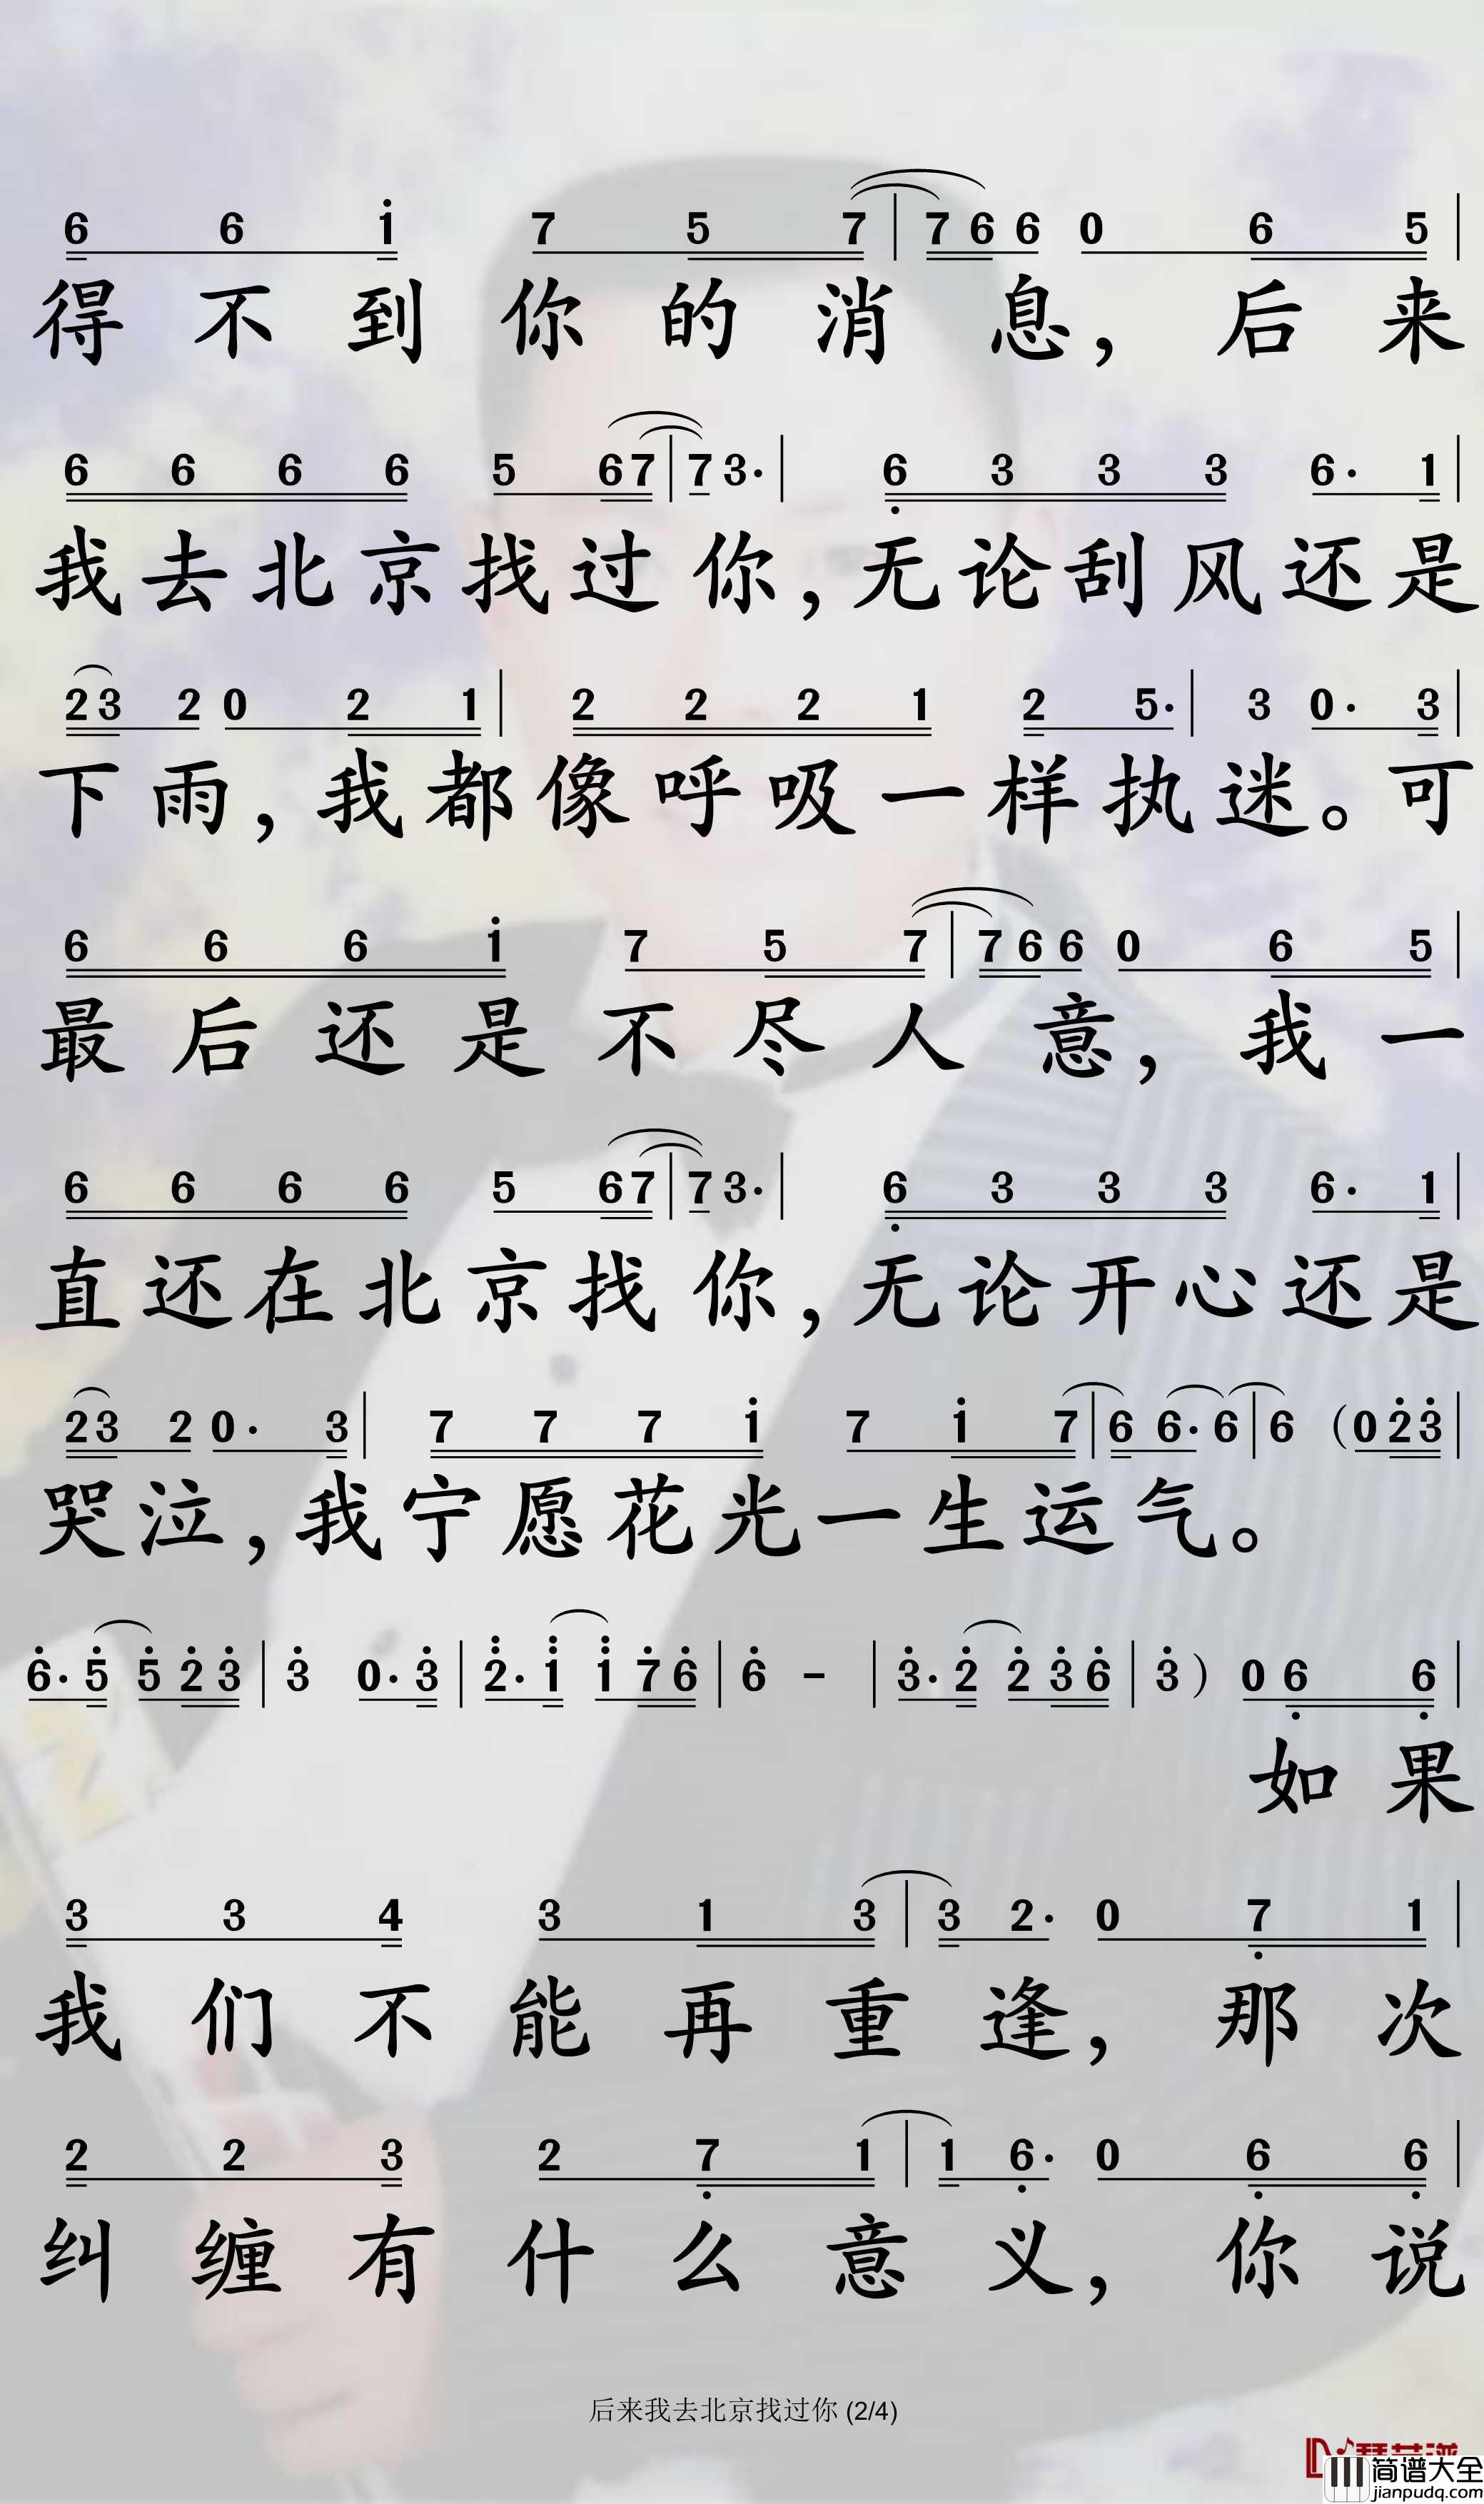 6 6 i 7 5 7 | 7 6 6 0 6 5 |
得不到你的消息，后来
6 6 6 6 5 6 7 | 7 3· | 6 3 3 3 6· 1 |
我去北京找过你，无论刮风还是
2 3 2 0 2 1 | 2 2 2 1 2 5· | 3 0· 3 |
下雨，我都像呼吸一样执迷。可
6 6 6 i 7 5 7 | 7 6 6 0 6 5 |
最后还是不尽人意，我一
6 6 6 6 5 6 7 | 7 3· | 6 3 3 3 6· 1 |
直还在北京找你，无论开心还是
2 3 2 0· 3 | 7 7 7 i 7 i 7 | 6 6· 6 | 6 (0 2 3 |
哭泣，我宁愿花光一生运气。
6· 5 5 2 3 | 3 0· 3 | 2· i i 7 6 | 6 - | 3· 2 2 3 6 | 3 ) 0 6 6 |
如果
3 3 4 3 1 3 | 3 2· 0 7 1 |
我们不能再重逢，那次
2 2 3 2 7 1 | 1 6· 0 6 6 |
纠缠有什么意义，你说
后来我去北京找过你 (2/4)
简谱大全
jianpudq.com